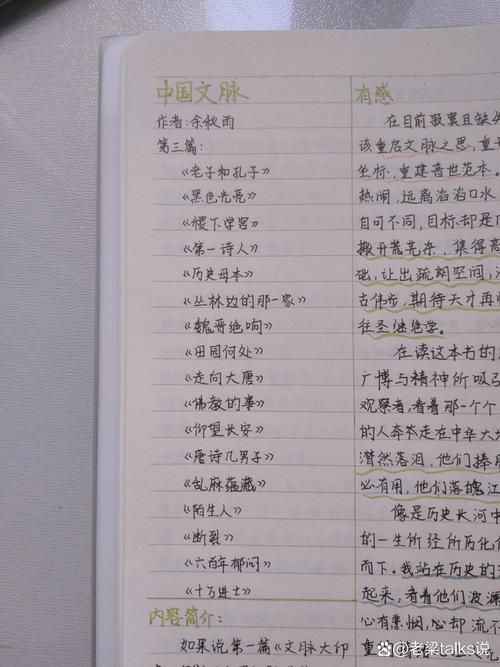 中国文脉
作者:余秋雨
第三篇:
《老子和孔子》
《黑色光亮》
《稷下学宫》
《第一诗人》
《历史母本》
《丛林边的那一家》
《魏晋绝响》
《田园何处》
《走向大唐》
《佛教的事》
《仰望长安》
《唐诗几男子》
《乱麻蕴藏》
《陌生人》
《断裂》
《六百年郁闷》
《十万进士》
内容简介:
如果说第一篇《文脉大印
有感
在目前寂寞且缺失
该重启文脉之思,重
坐标,重建普世范本。
热闹,远离滔滔口水
自可不同,目标却是
搬开荒芜杂,集得高
础,让出疏朗空间,
古伟步,期待天才再
往圣继绝学。
在读这本书的
广博与精神所吸引
观察者,看着那一个个
的人奔忙走在中华大
潸然落泪,他们捧
必有用,他们落魄江
像是历史长河中
的一生所经所历化
而下。我站在历史的
起来,看着他们波澜
心有悲悯,心却流不
重
@老梁talks说